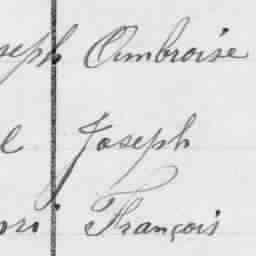 seph Ambroise
l Joseph
nri François